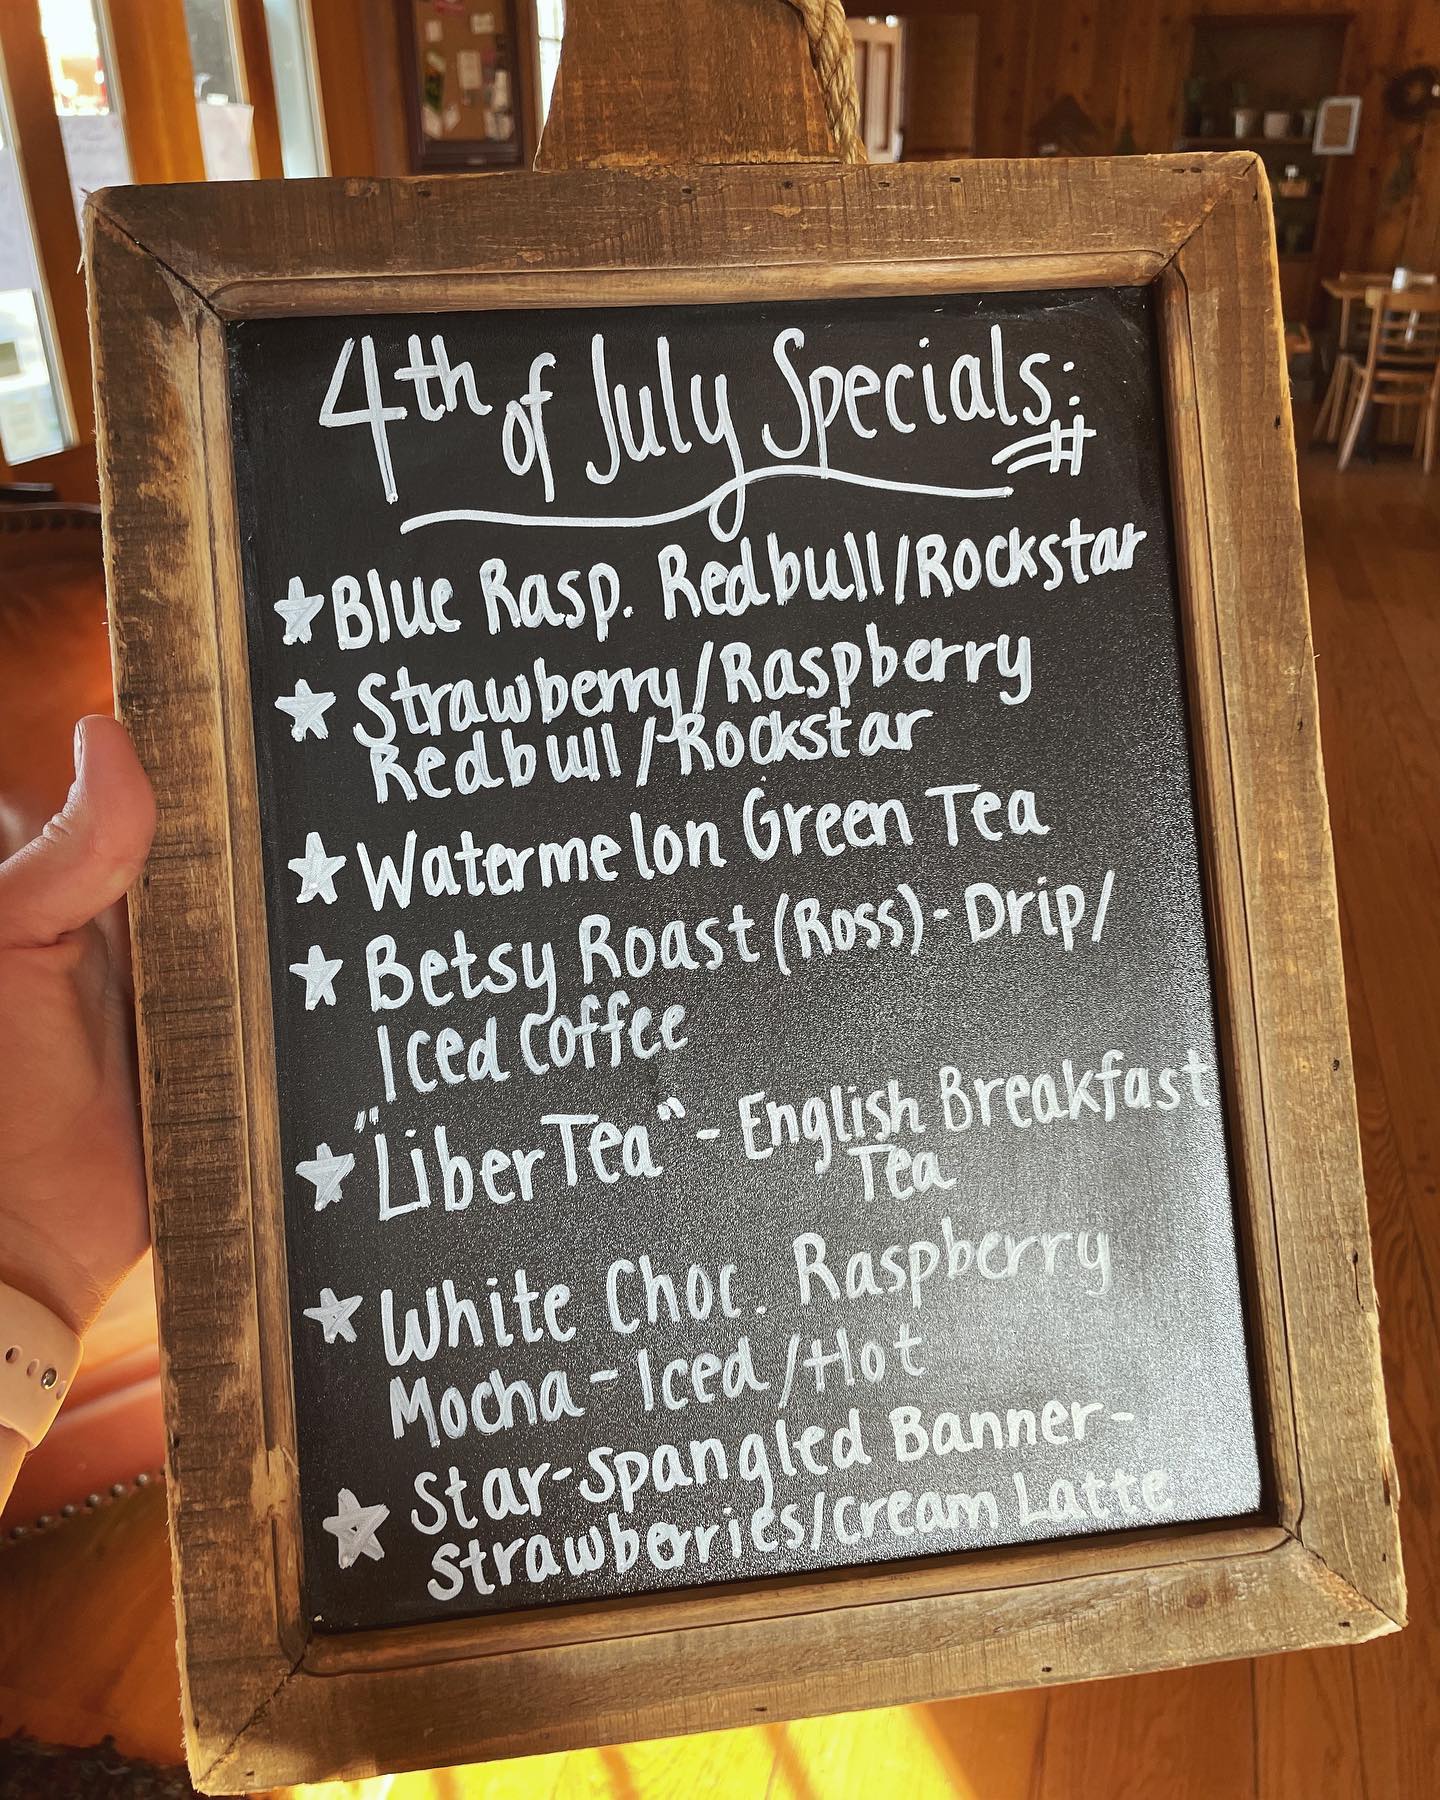 4th of July Specials:
Blue Rasp. Redbull/Rockstar
Strawberry/Raspberry
Redbull/Rockstar
Watermelon Green Tea
Betsy Roast (Ross)- Drip/
Iced Coffee
"LiberTea" - English Breakfast
Tea
White Choc. Raspberry
Mocha - Iced/Hot
Star-Spangled Banner-
Strawberries/Cream Latte